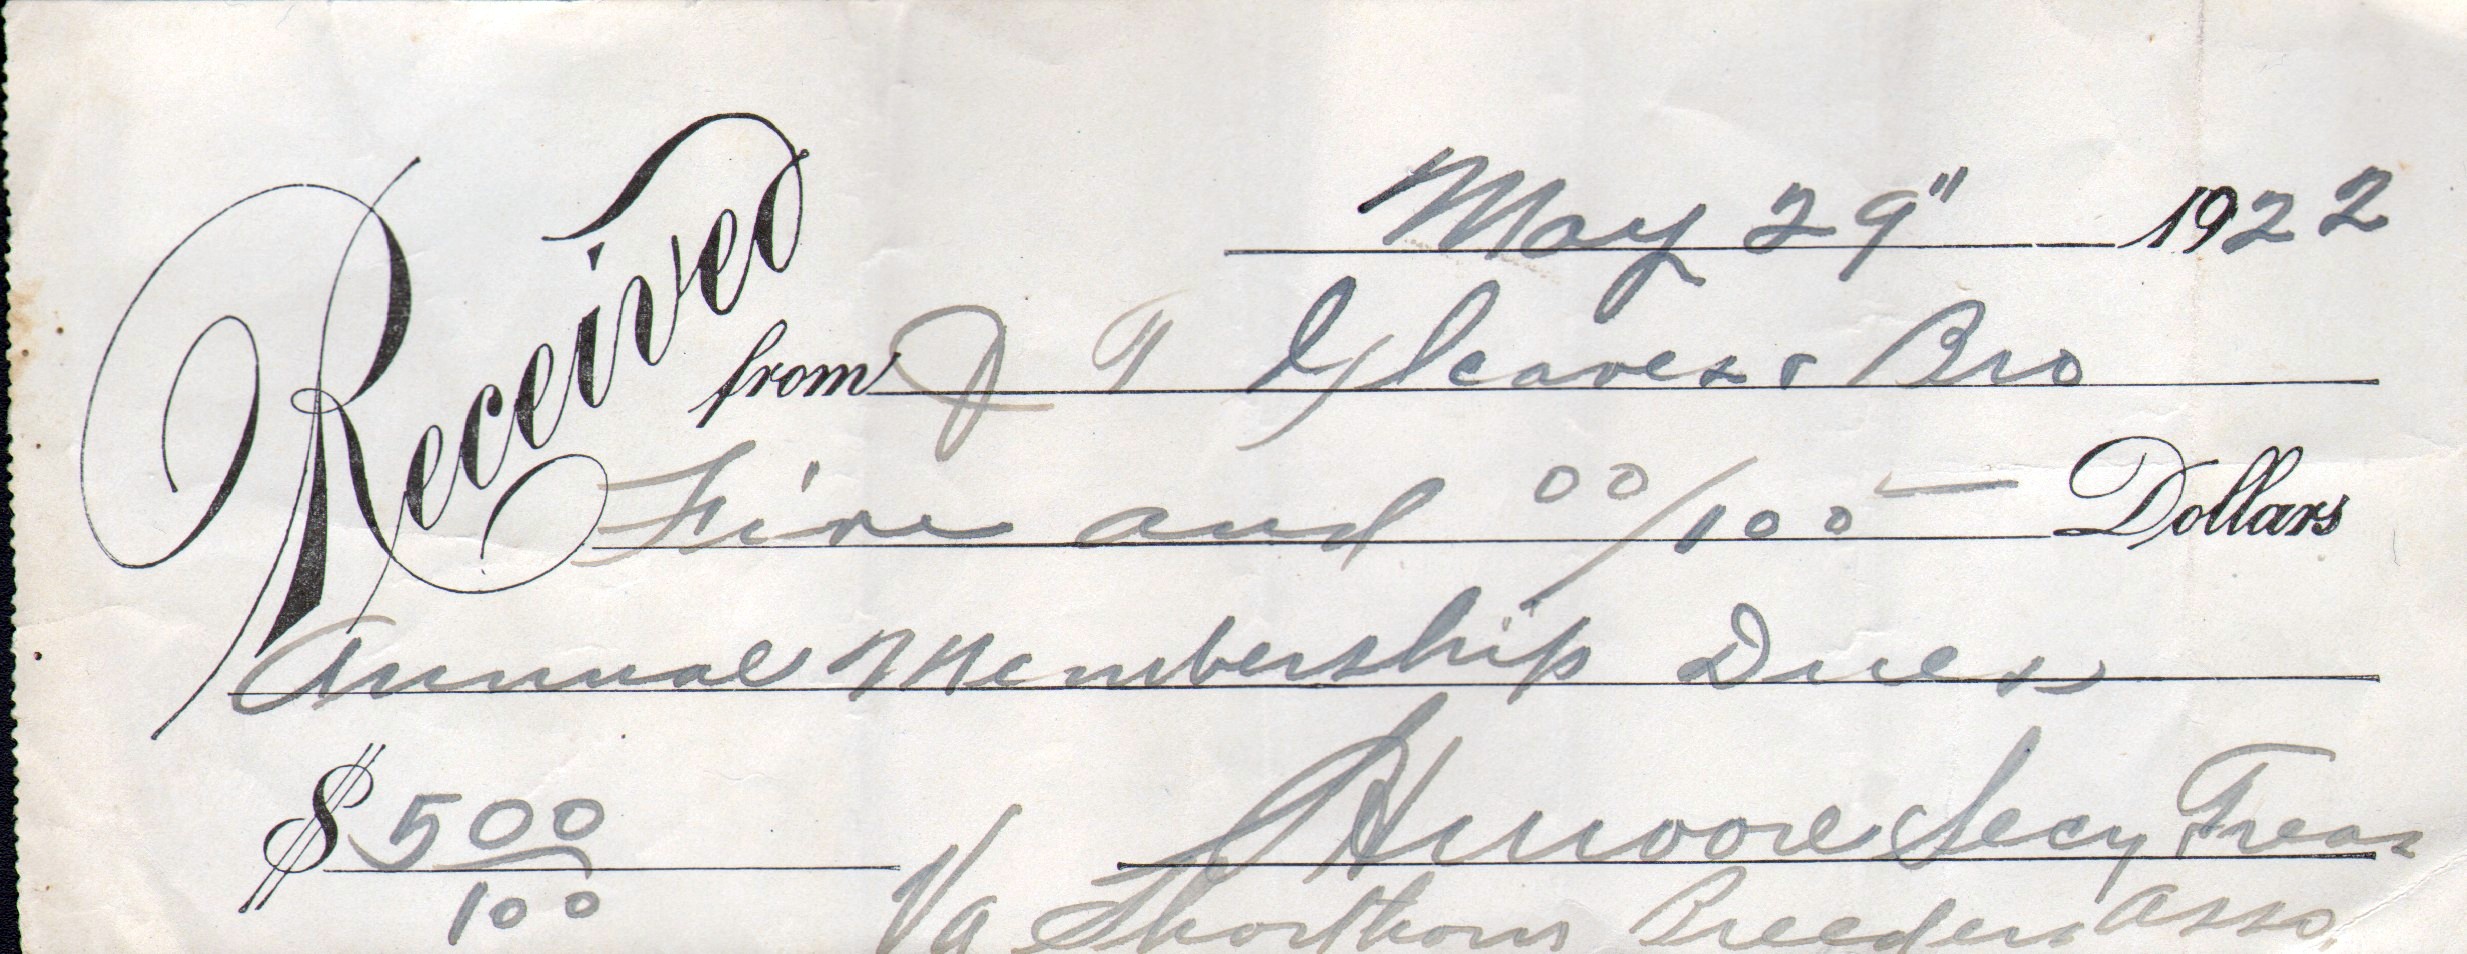 May 29" 1922
Received from J T Gleaves & Bro
Five and 00/100 Dollars
Annual Membership Dues
$ 5 00/100 Hmoore Secy Treas
Va Shorthorn Breeders Asso.